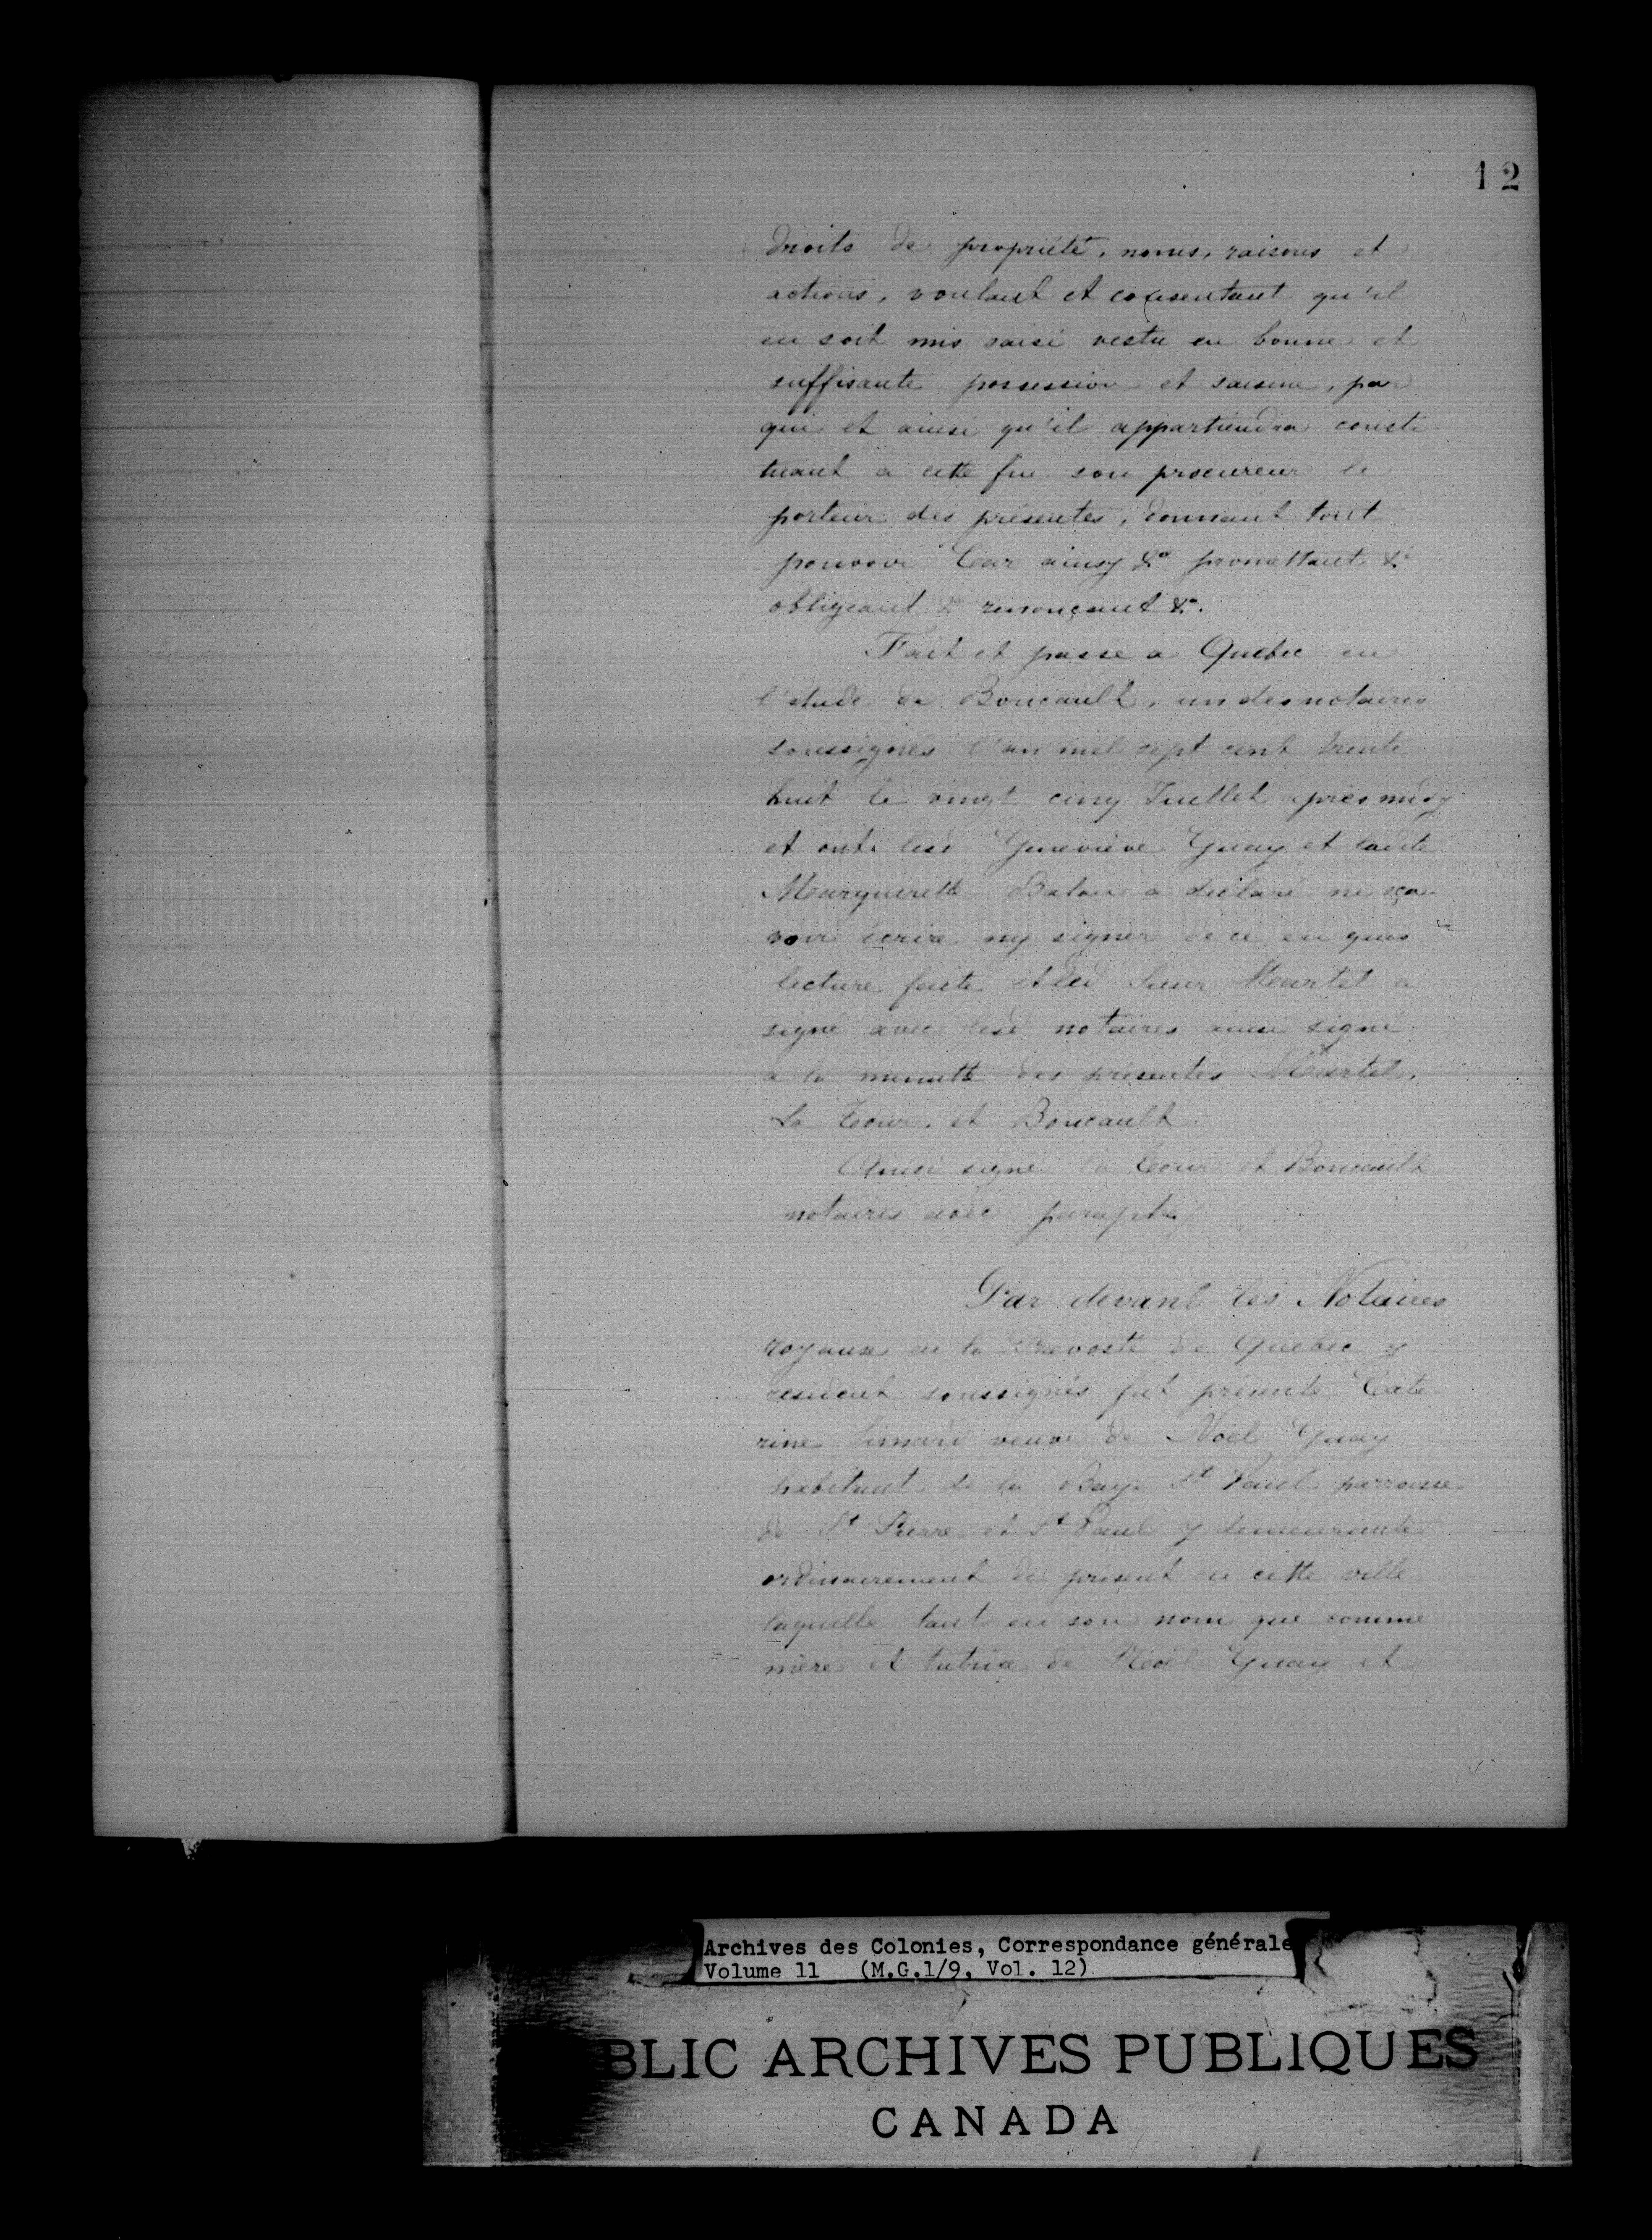 12
droits de propriété, noms, raisons et
actions, voulant et consentant qu'il
en soit mis saisi vestu en bonne et
suffisante possession et saisine, par
qui et ainsi qu'il appartiendra consti
tuant a cette fin son procureur le
porteur des présentes, donnant tout
pouvoir Car ainsy &a promettant &a
obligeant &a renonçant &a.
Fait et passé a Quebec en
l'etude de Boucault, un des notaires
soussignés l'an mil sept cent trente
huit le vingt cinq Juillet apres midy
et ont lesd Geneviève Guay et ladite
Marguerite a declaré ne sça-
voir écrire ny signer de ce enquis
lecture faite et led Sieur Martel a
signé avec lesd notaires ainsi signé
a la minutte des présentes Martel,
La Tour, et Boucault.
Ainsi signé la Tour et Boucault
notaires avec paraphe/
Par devant les Notaires
royaux en la Prevosté de Quebec y
resident soussignés fut présente Cate
rine Simard veuve de Noël Guay
habitant de la Baye St Paul parroisse
de St Pierre et St Paul y demeurante
ordinairement de présent en cette ville
laquelle tant en son nom que comme
mère et tutrice de Noël Guay et
Archives des Colonies, Correspondance générale
Volume 11 (M.G.1/9, Vol. 12)
BLIC ARCHIVES PUBLIQUES
CANADA